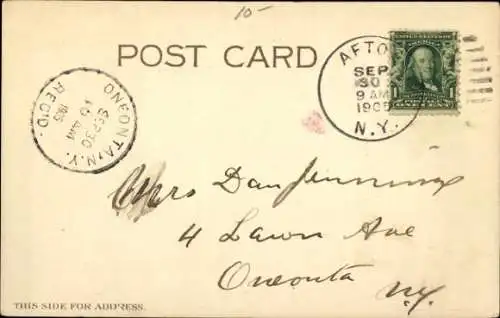 10-
POST CARD
AFTO
SEP
30
9 AM
1905
N.Y.
1
1
ONE CENT
ONEONTA, N.Y.
SEP 30
10 AM
1905
REC'D.
Mrs Dan Jennings
4 Lawn Ave
Oneonta NY.
THIS SIDE FOR ADDRESS.